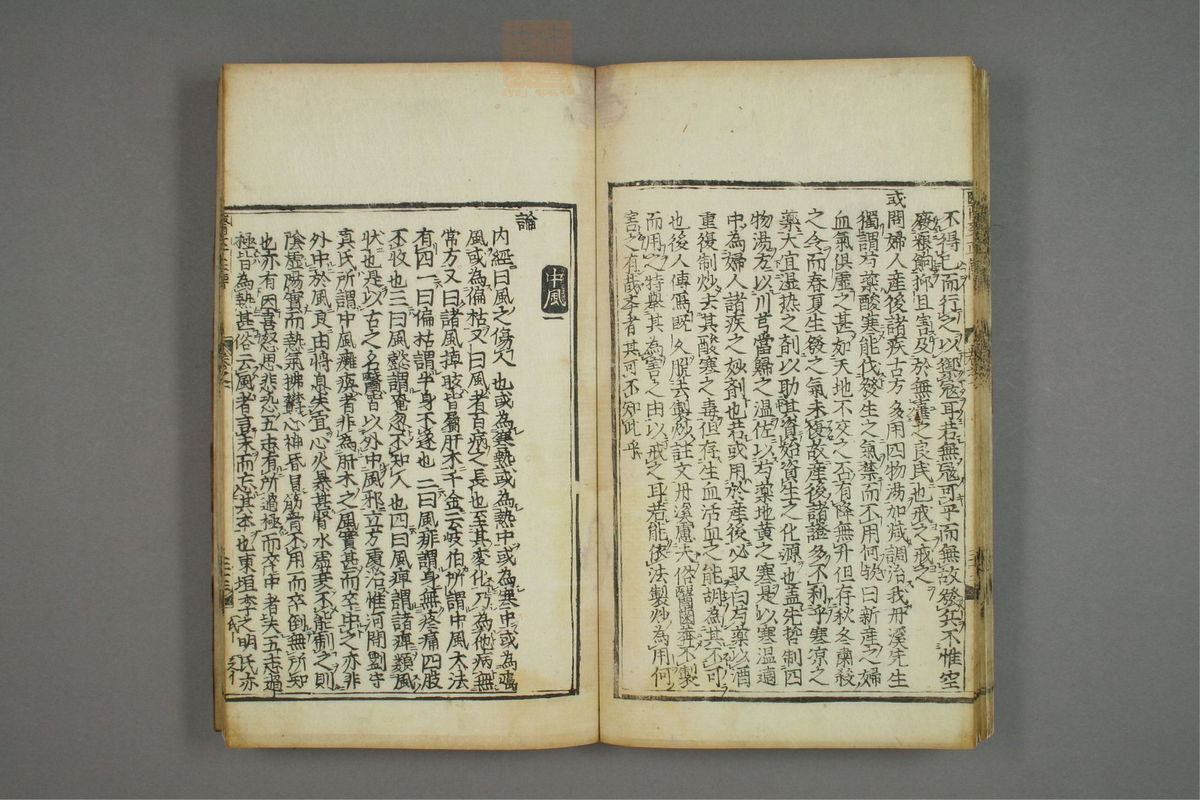 不得已而行之以禦寇耳若無寇可平而無故發兵不惟空
糜糧餉抑且害及於無辜之良民也戒之戒之
或問婦人産後諸疾古方多用四物湯加減調治我丹溪先生
獨謂芍藥酸寒能伐發生之氣禁而不用何欤曰新産之婦
血氣俱虛之甚如天地不交之否有降無升但存秋冬肅殺
之令而春夏生發之氣未復故産後諸證多不利乎寒涼之
藥大宜溫热之剤以助其資始資生之化源也盖先哲制四
物湯方以川芎當歸之温佐以芍藥地黄之寒是以寒温適
中為婦人諸疾之妙剤也若或用於産後必取白芍藥以酒
重復制炒去其酸寒之毒但存生血活血之能胡為其不可
也後人傳寫既久脱去製炒註文丹溪慮夫俗醫鹵莽不製
而用之特舉其為害之由以戒之耳若能依法製炒為用何
害之有哉學者其可不知此乎
中風一
論
内經曰風之傷人也或為寒熱或為熱中或為寒中或為癘
風或為偏枯又曰風者百病之長也至其変化乃為他病無
常方又曰諸風掉眩皆屬肝木千金云岐伯所謂中風大法
有四一曰偏枯謂半身不遂也二曰風痱謂身無疼痛四肢
不收也三曰風懿謂奄忽不知人也四曰風痺謂諸痺類風
状也是以古之名醫皆以外中風邪立方處治惟河間劉守
真氏所謂中風癱瘓者非為肝木之風實甚而卒中之亦非
外中於風良由將息失宜心火暴甚腎水虛衰不能制之則
陰虛陽實而熱氣拂鬱心神昏冒筋骨不用而卒倒無所知
也亦有因喜怒思悲恐五志有所過極而卒中者夫五志過
極皆為熱甚俗云風者言末而忘其本也東垣李之明氏亦